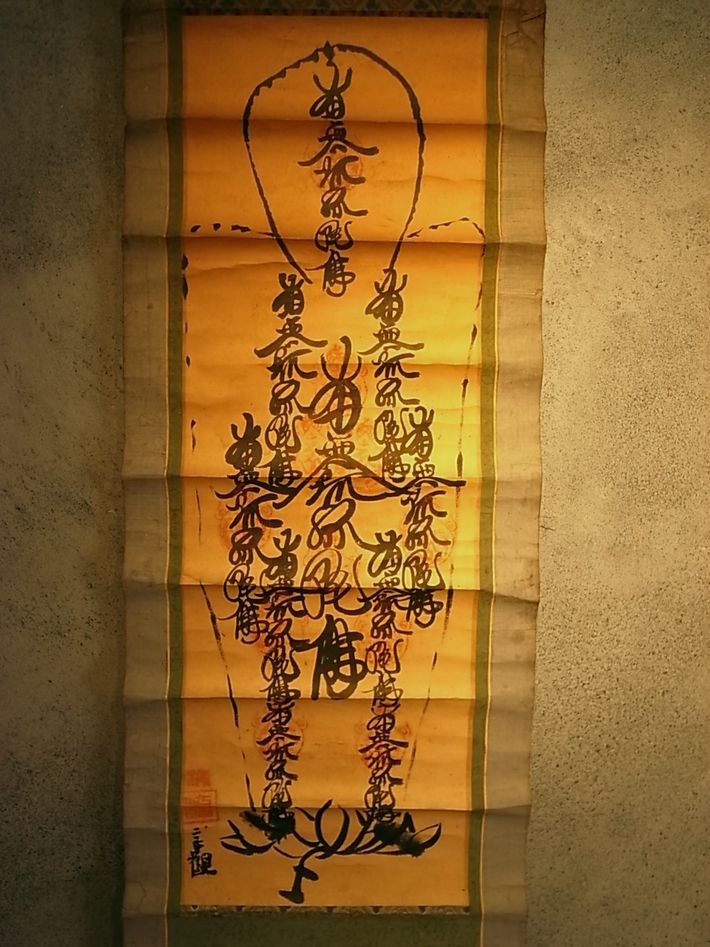 南無阿弥陀佛
南無阿弥陀佛
南無阿弥陀佛
南無阿弥陀佛
南無阿弥陀佛
南無阿弥陀佛
南無阿弥陀佛
南無阿弥陀佛
南無阿弥陀佛
南無阿弥陀佛